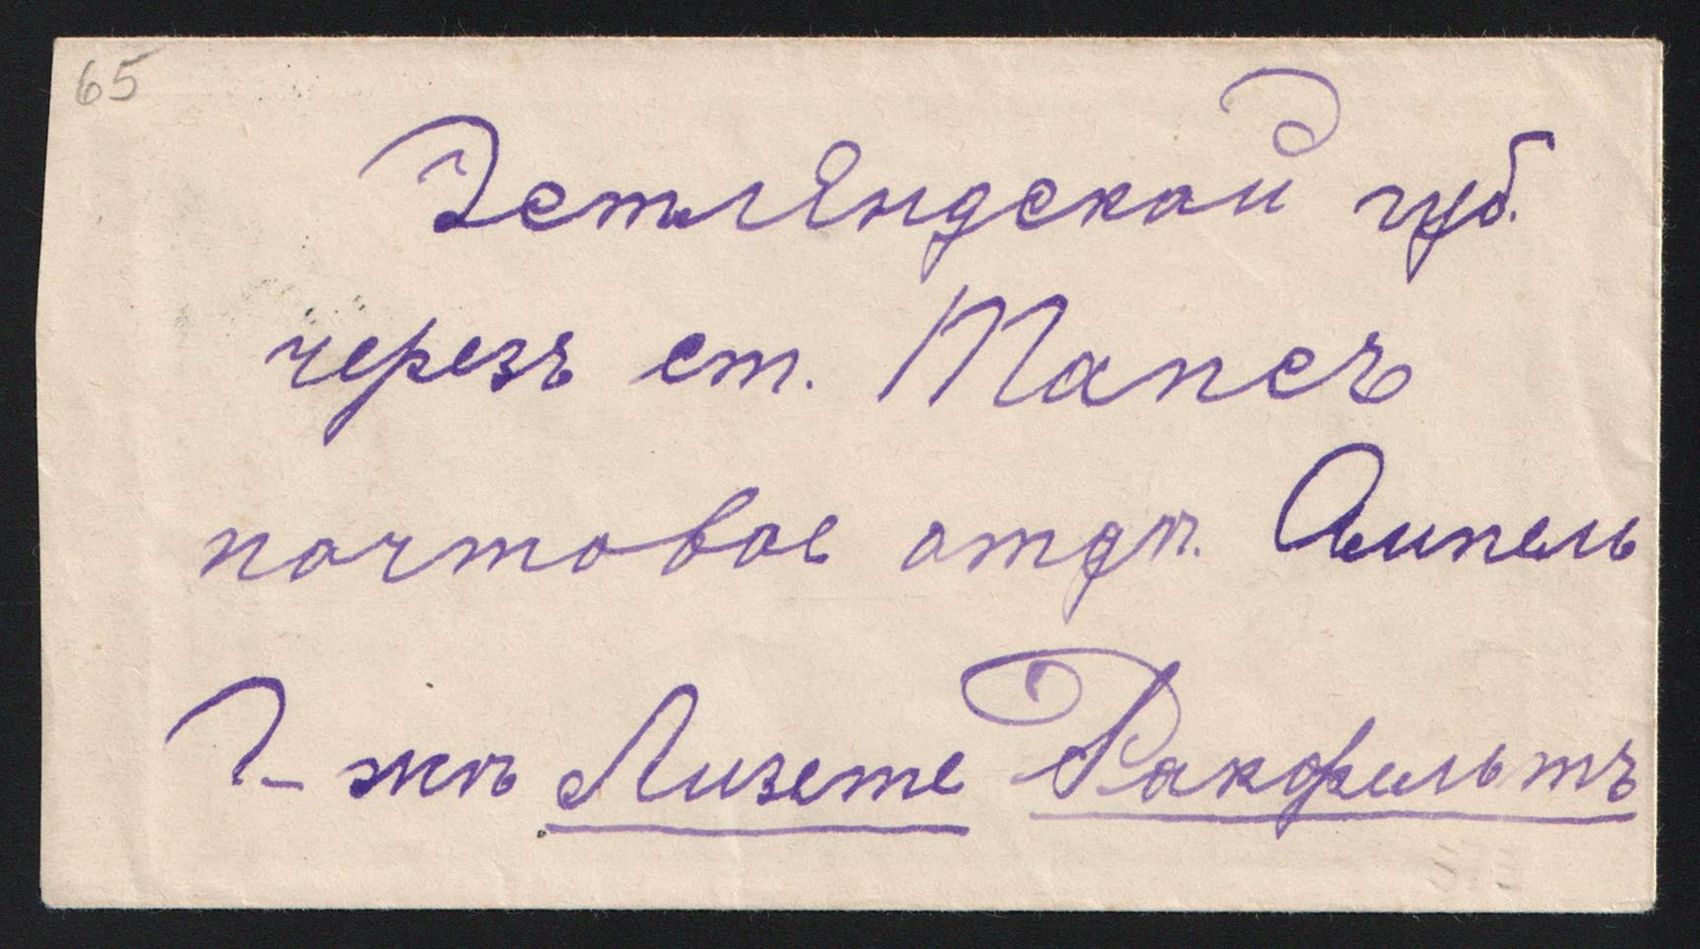 65
Эстляндской губ.
черезъ ст. Тапсъ
почтовое отдѣ. Ампель
Г-жѣ Лизете Ракфельтъ